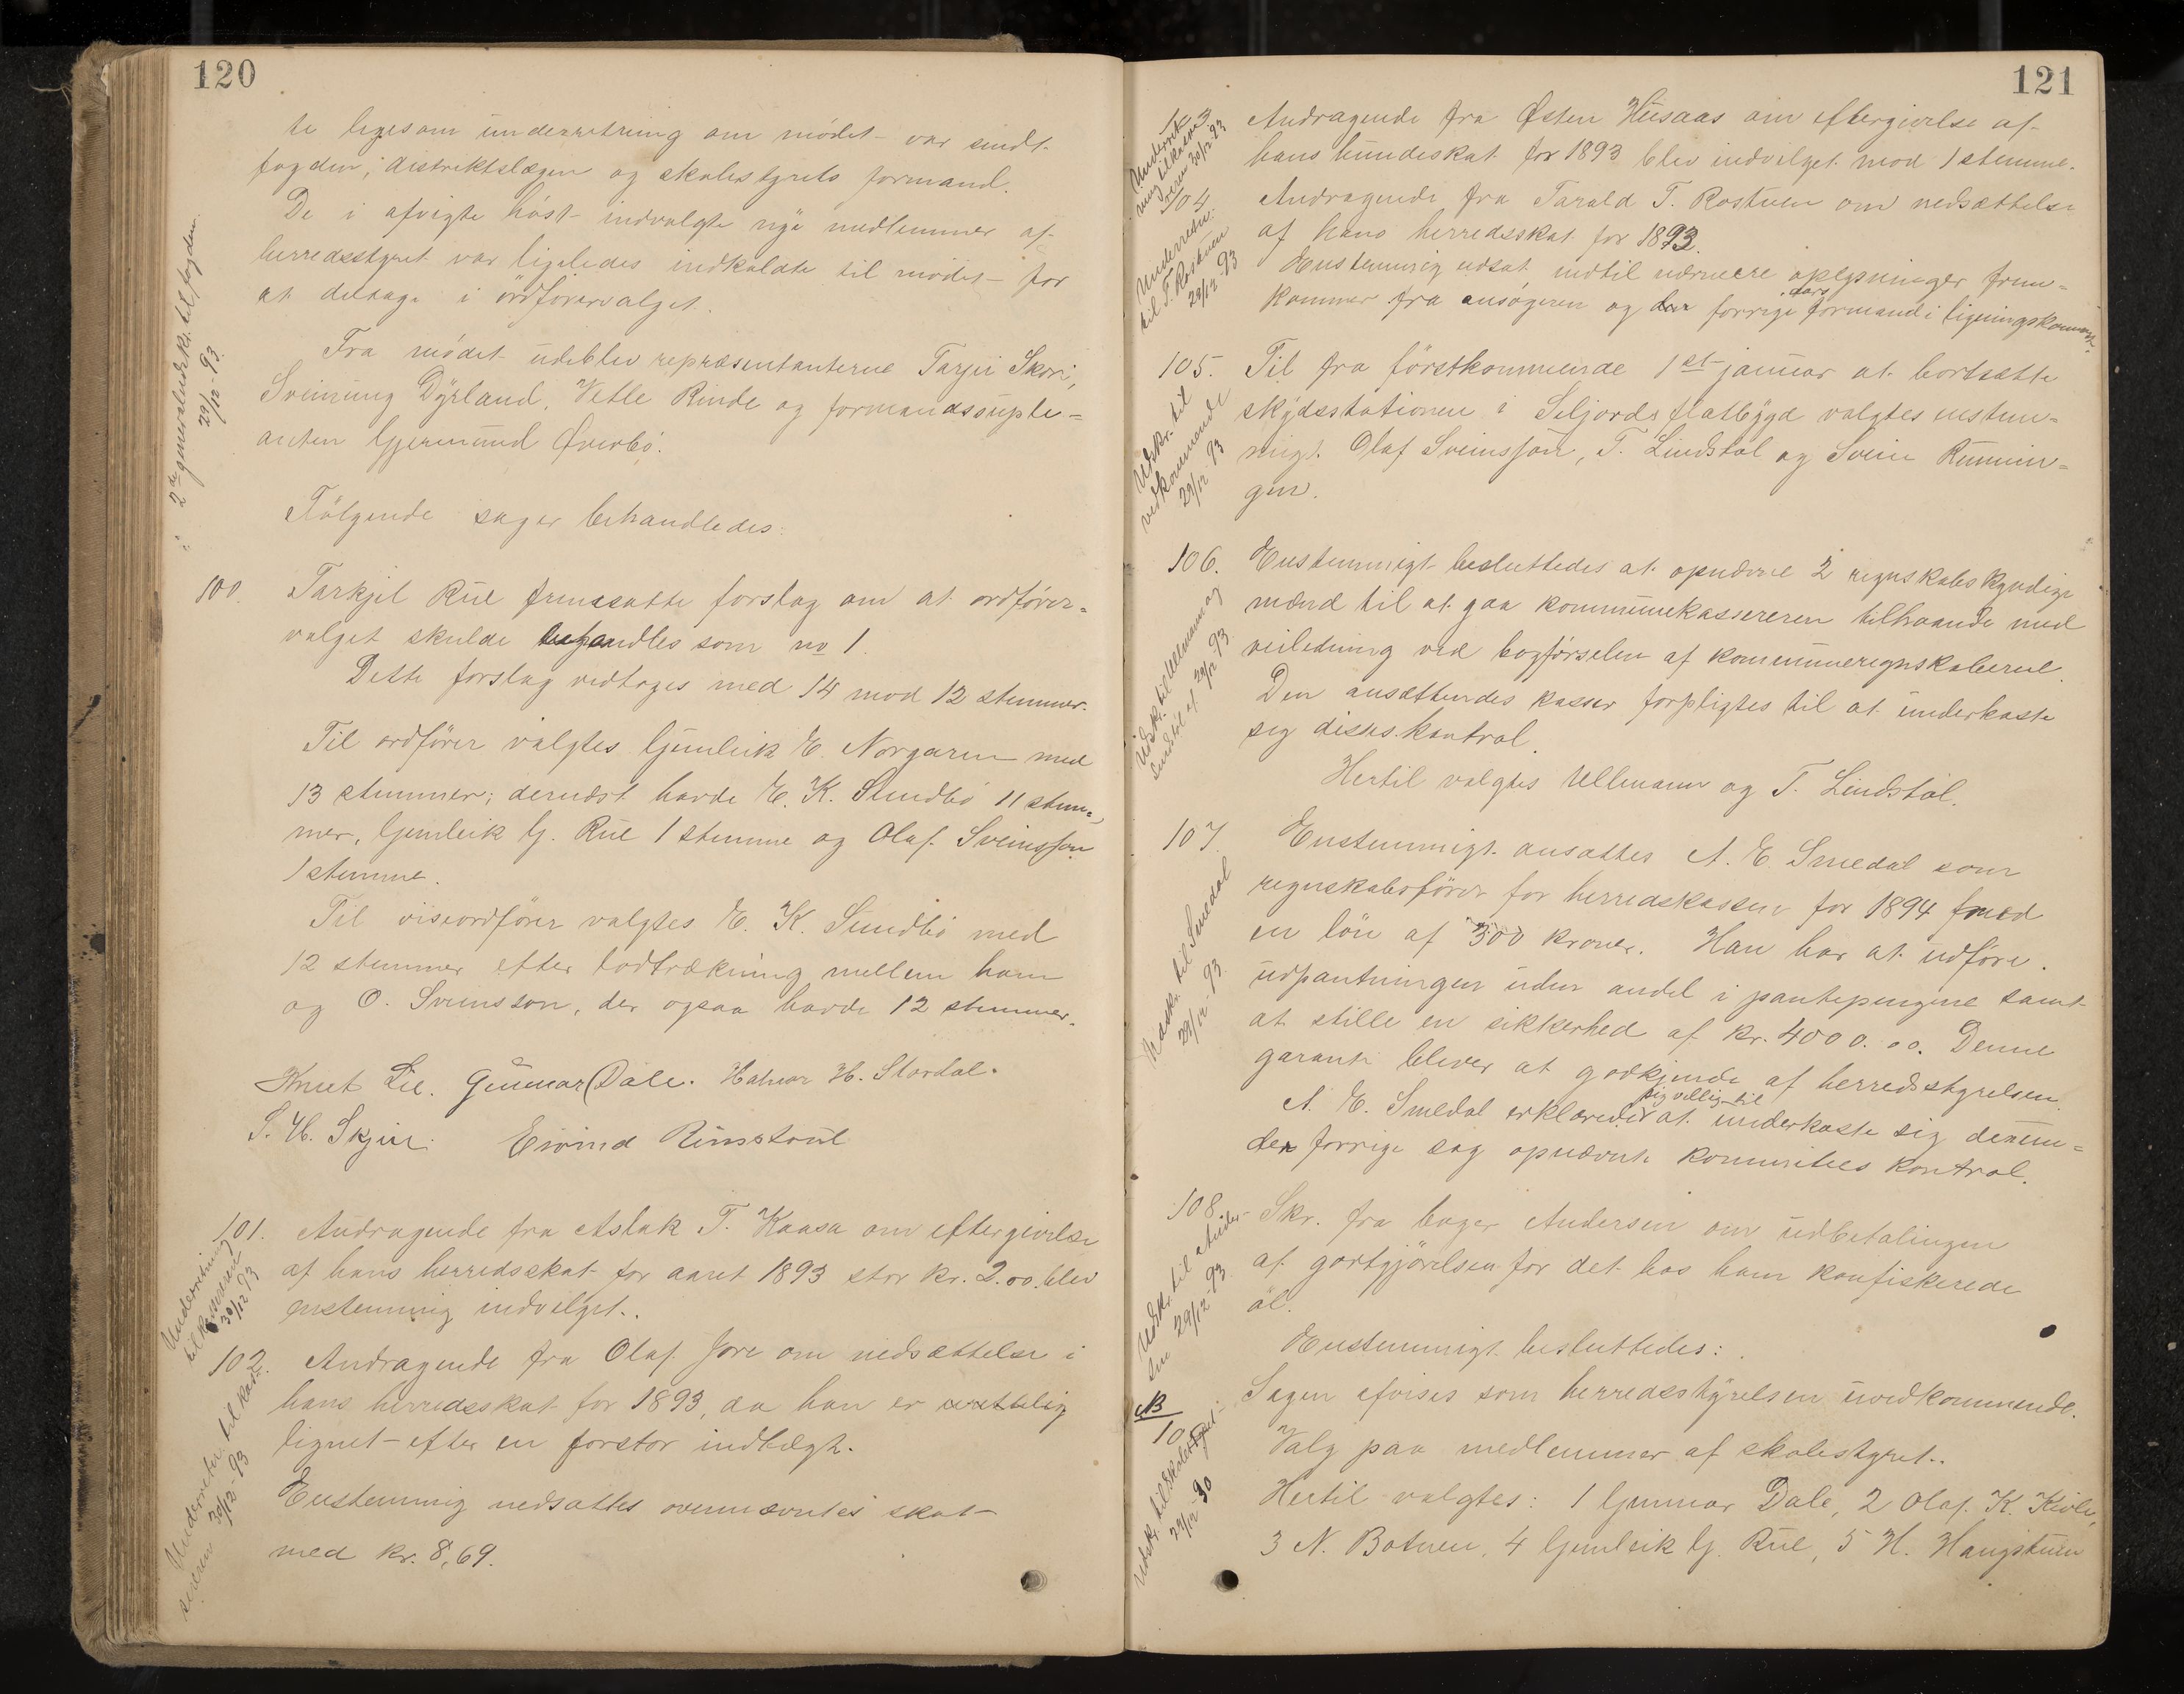 120
te ligesom underretning om mødet var sendt
fogden, distriktslægen og skolestyrets formand.
De i afvigte høst indvalgte nye medlemmer af
herredsstyret var ligeledes indkaldte til mødet for
at deltage i ordførervalget.
Fra mødet udeblev repræsentanterne Tarjei Skori,
Sveinung Dyrland, Vetle Rinde og formandssuple=
anten Gjermund Øverbö.
Følgende sager behandledes:
2de generaludskr. til fogden
29/12-93.
100. Tarkjel Rue fremsatte forslag om at ordfører=
valget skulde behandles som no 1.
Dette forslag vedtoges med 14 mod 12 stemmer.
Til ordfører valgtes Gunleik E. Norgaren med
13 stemmer; dernæst havde E. K. Sundbö 11 stem=
mer, Gunleik G. Rue 1 stemme og Olaf Sveinsson
1 stemme.
Til viseordfører valgtes E. K. Sundbö med
12 stemmer efter lodtrækning mellem ham
og O. Sveinsson, der ogsaa havde 12 stemmer.
Knut Lie. Gunnar Dale. Halvor H. Stordal.
S. H. Skjeie. Eivind Rinsstoul
101. Andragende fra Aslak T. Kaasa om eftergivelse
af hans herredsskat for aaret 1893 stor kr. 2.00. blev
enstemmig indvilget.
Underretning
til kassereren
30/12 93
102. Andragende fra Olaf Jore om nedsættelse i
hans herredsskat for 1893, da han er urettelig
lignet efter en forstor indtægt.
Enstemmig nedsattes ovennævntes skat
med kr. 8,69.
Underretn. til kas=
sereren 30/12-93
121
103 Andragende fra Østen Husaas om eftergivelse af
hans hundeskat for 1893 blev indvilget mod 1 stemme.
Underret=
ning til kasse=
reren 30/12-93
104 Andragende fra Tarald T. Rostuen om nedsættelse
af hans herredsskat for 1893.
Enstemmig udsat indtil nærmere oplysninger frem=
kommer fra ansøgeren og forrige aars formand i ligningskommis.
Underretn.
til T. Rostuen
29/12-93
105. Til fra førstkommende 1ste januar at bortsætte
skydsstationen i Seljords flatbygd valgtes enstem=
migt Olaf Sveinsson, T. Lindstøl og Svein Runnin=
gen.
Udskr. til
vedkommende
29/12 93
106. Enstemmigt besluttedes at opnævne 2 regnskabskyndige
mænd til at gaa kommunekassereren tilhaande med
veiledning ved bogførselen af kommuneregnskaberne.
Den ansættendes kasser forpligtes til at underkaste
sig disses kontrol.
Hertil valgtes Ullmann og T. Lindstøl.
Udskr. til Ullmann og
Lindstöl af 29/12-93
107. Enstemmigt ansattes A. E. Smedal som
regnskabsfører for herredskassen for 1894 med
en løn af 300 kroner. Han har at udføre
udpantningen uden andel i pantepengene samt
at stille en sikkerhed af kr. 4000.00. Denne
garanti bliver at godkjende af herredsstyrelsen.
A. E. Smedal erklærede sig villig til at underkaste sig den un=
der forrige sag opnævnte kommitees kontrol.
Udskr. til Smedal
29/12-93.
108. Skr. fra bager Andersen om udbetalingen
af godtgjørelsen for det hos ham konfiskerede
øl.
Enstemmigt besluttedes:
Sagen afvises som herredsstyrelsen uvedkommende.
Udskr. til Ander=
sen 29/12-93
NB
109 Valg paa medlemmer af skolestyret.
Hertil valgtes: 1 Gunnar Dale, 2 Olaf K. Kivle,
3 N. Botnen, 4 Gunleik G. Rue, 5 H. Haugstuen
Udskr. til skolestyret
29/12-90